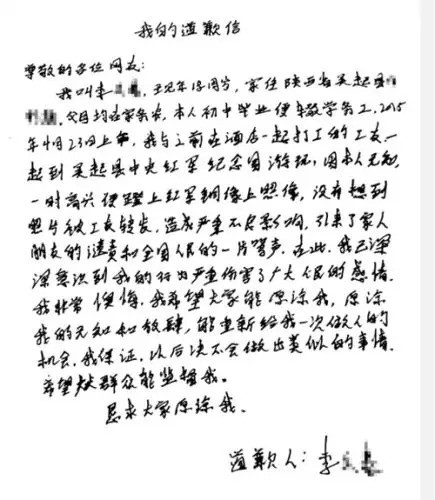 我的道歉信
尊敬的各位网友:
我叫李 ,王现年18周岁,家住陕西省吴起县
,父母均在家务农,本人初中毕业便辍学务工,2015
年4月23日上午,我与之前在酒店一起打工的工友一
起到吴起县中央红军纪念园游玩,因本人无知,
一时高兴便蹬上红军铜像上照像,没有想到
照片被工友转发,造成严重不良影响,引来了家人
朋友的谴责和全国人民的一片骂声,在此,我已深
深意识到我的行为严重伤害了广大人民的感情,
我非常懊悔,我希望大家能原谅我,原谅
我的无知和放肆,能重新给我一次做人的
机会,我保证,以后决不会做出类似的事情,
希望 群众能监督我。
恳求大家原谅我。
道歉人:李